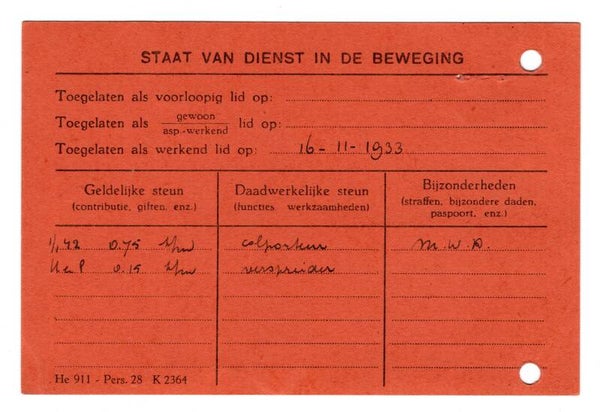 STAAT VAN DIENST IN DE BEWEGING
Toegelaten als voorloopig lid op:
Toegelaten als gewoon asp.-werkend lid op:
Toegelaten als werkend lid op: 16-11-1933
Geldelijke steun
(contributie, giften, enz.)
Daadwerkelijke steun
(functies, werkzaamheden)
Bijzonderheden
(straffen, bijzondere daden,
paspoort, enz.)
1/1.42 0.75
colporteur
M.W.A.
0.15
verspreider
He 911 - Pers. 28 K 2364